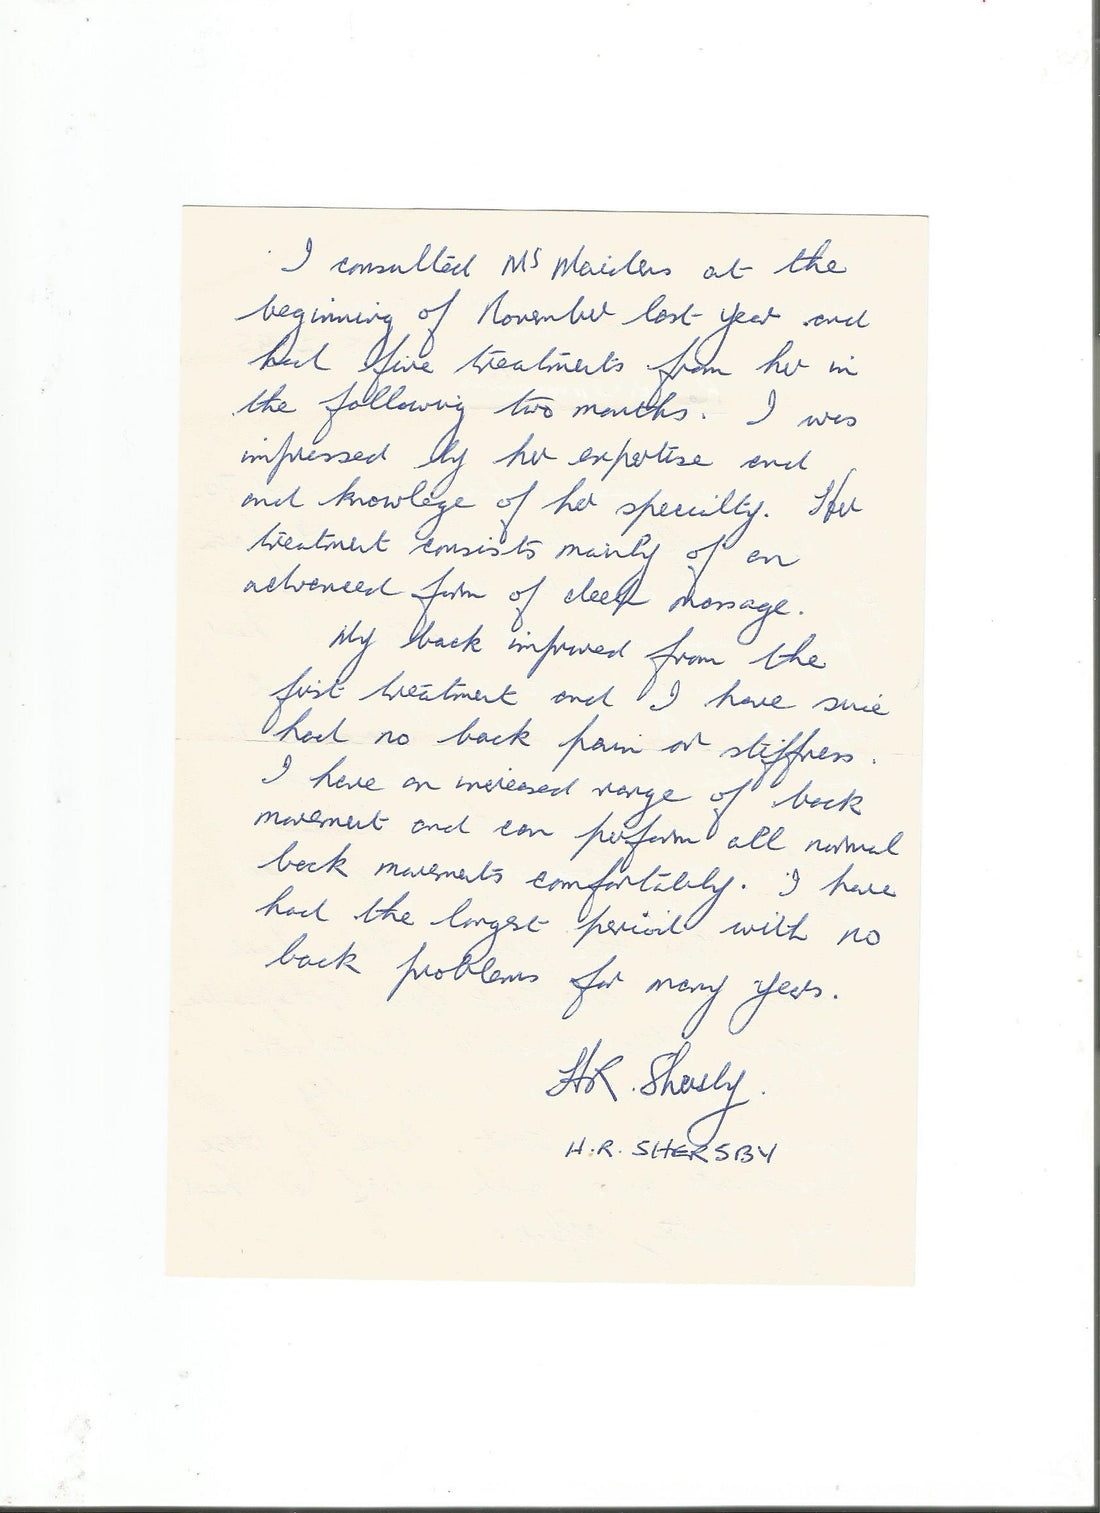 I consulted Ms Maiders at the
beginning of November last year and
had five treatments from her in
the following two months. I was
impressed by her expertise and
and knowlege of her specialty. Her
treatment consists mainly of an
advanced form of deep massage.
My back improved from the
first treatment and I have since
had no back pain or stiffness.
I have an increased range of back
movement and can perform all normal
back movements comfortably. I have
had the longest period with no
back problems for many years.
H.R. Shersby.
H.R. SHERSBY